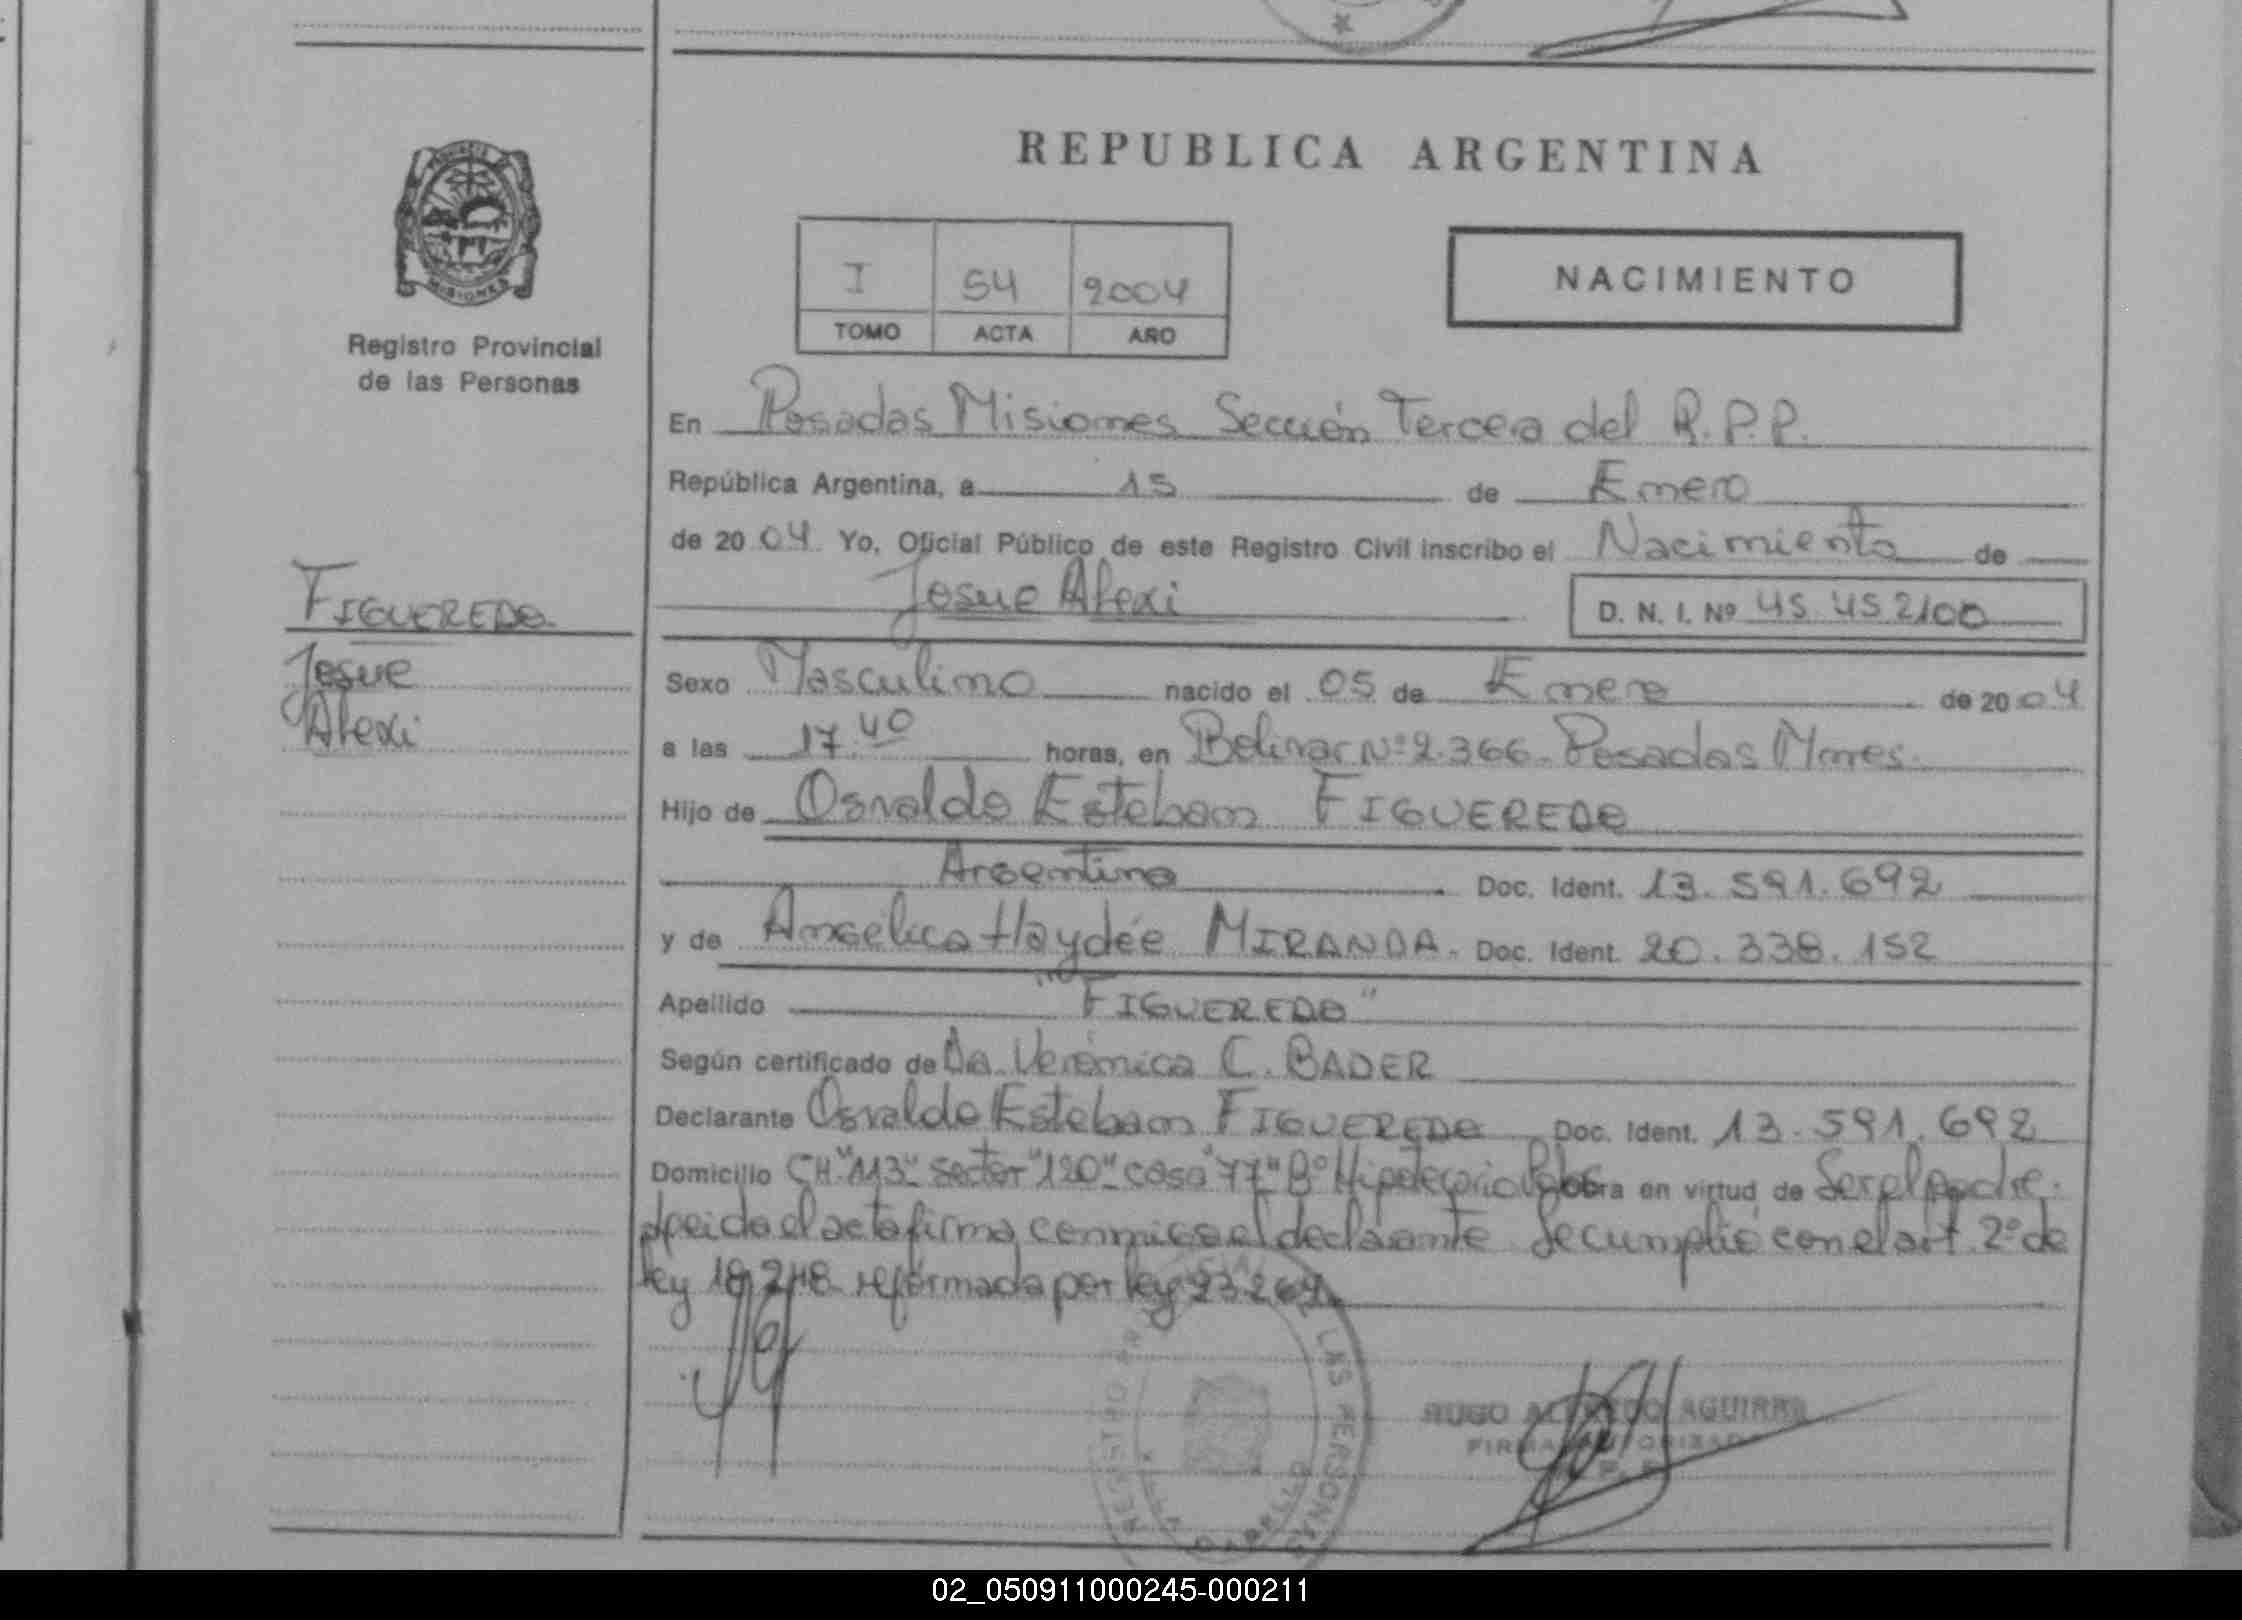 REPUBLICA ARGENTINA
PROVINCIA DE
MISIONES
Registro Provincial
de las Personas
I 54 2004
TOMO ACTA AÑO
NACIMIENTO
En Posadas Misiones Sección Tercera del R.P.P.
República Argentina, a 15 de Enero
de 2004 Yo, Oficial Público de este Registro Civil inscribo el Nacimiento de
Josue Alexi D. N. I. Nº 45.452100
FIGUEREDO
Josue
Alexi
Sexo Masculino nacido el 05 de Enero de 2004
a las 17.40 horas, en Bolivar Nº 2.366. Posadas Mnes.
Hijo de Osvaldo Esteban FIGUEREDO
Argentino Doc. Ident. 13.591.692
y de Angélica Haydée MIRANDA. Doc. Ident. 20.338.152
Apellido "FIGUEREDO"
Según certificado de Da. Verónica C. BADER
Declarante Osvaldo Esteban FIGUEREDO Doc. Ident. 13.591.692
Domicilio CH "113" sector "120" casa "77" Bº Hipotecario Pdas Obra en virtud de Ser el padre.
Leida el acta firma conmigo el declarante Se cumplió con el art 2º de
ley 18.248 reformada por ley 23.262
REGISTRO LAS PERSONAS
VILLA CABELLO
HUGO ALFREDO AGUIRRE
FIRMA AUTORIZADA
02_050911000245-000211